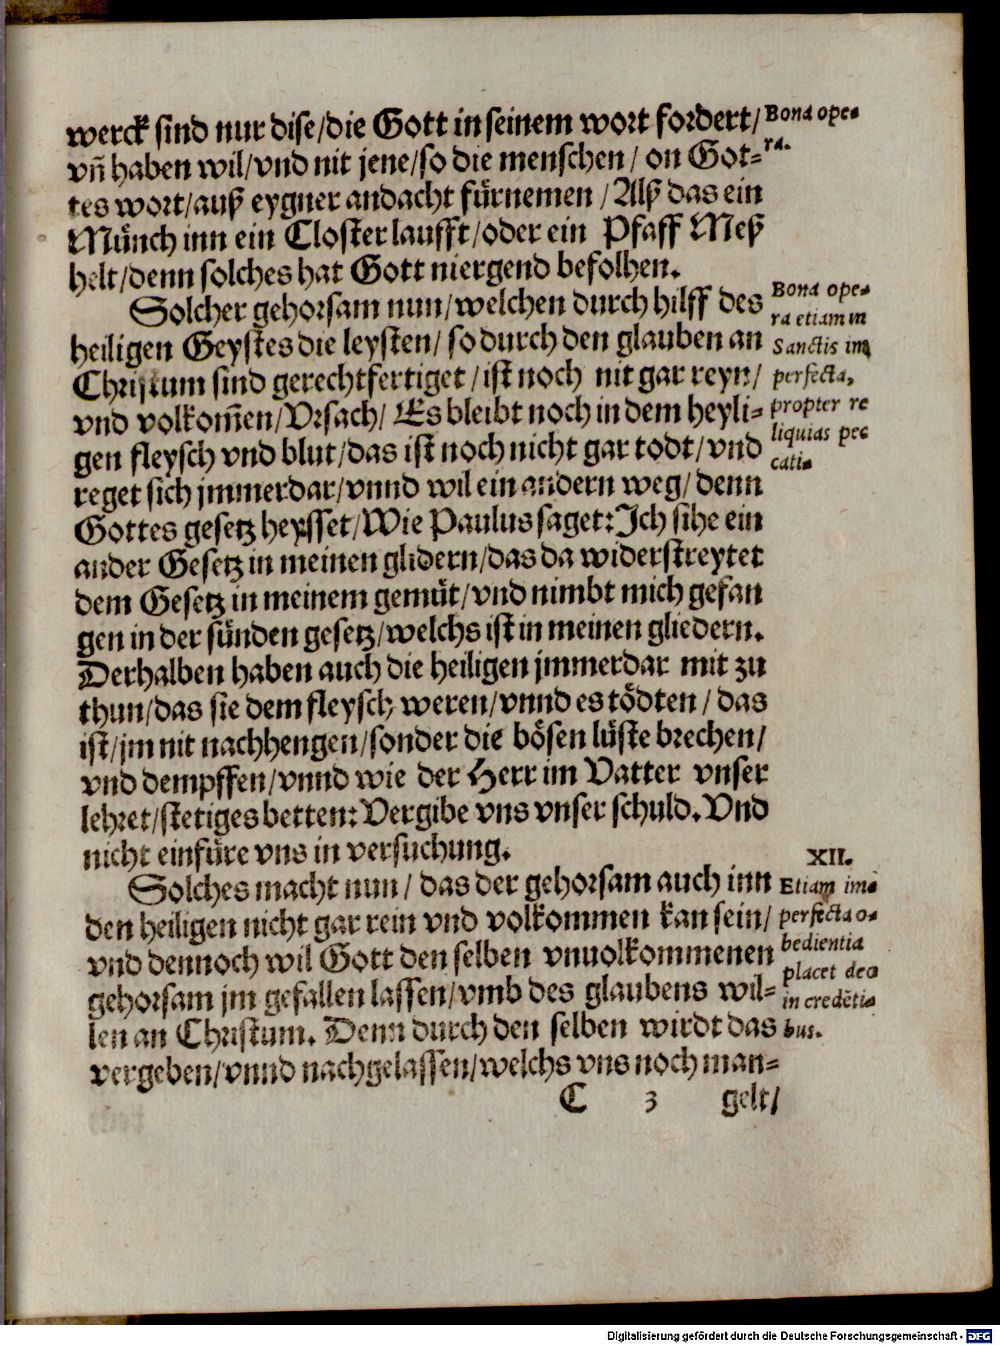 werck sind nur dise/die Gott in seinem wort fordert/
vñ haben wil/vnd nit jene/so die menschen/ on Got-
tes wort/auß eygner andacht fürnemen /Alß das ein
Münch inn ein Closter laufft/oder ein Pfaff Meß
helt/denn solches hat Gott niergend befolhen.
Bona ope-
ra.
Solcher gehorsam nun/welchen durch hilff des
heiligen Geystes die leysten/ so durch den glauben an
Christum sind gerechtfertiget/ist noch nit gar reyn/
vnd volkom̃en/Vrsach/ Es bleibt noch in dem heyli-
gen fleysch vnd blut/das ist noch nicht gar todt/vnd
reget sich jmmerdar/vnnd wil ein andern weg/ denn
Gottes gesetz heysset/Wie Paulus saget: Ich sihe ein
ander Gesetz in meinen glidern/das da widerstreytet
dem Gesetz in meinem gemüt/vnd nimbt mich gefan
gen in der sünden gesetz/welchs ist in meinen gliedern.
Derhalben haben auch die heiligen jmmerdar mit zu
thun/das sie dem fleysch weren/vnnd es tödten/ das
ist/jm nit nachhengen/sonder die bösen lüste brechen/
vnd dempffen/vnnd wie der Herr im Vatter vnser
lehret/stetiges betten: Vergibe vns vnser schuld. Vnd
nicht einfüre vns in versuchung.
Bona ope-
ra etiam in
Sanctis im
perfecta,
propter re
liquias pec
cati.
Solches macht nun/ das der gehorsam auch inn
den heiligen nicht gar rein vnd volkommen kan sein/
vnd dennoch wil Gott den selben vnuolkommenen
gehorsam jm gefallen lassen/vmb des glaubens wil-
len an Christum. Denn durch den selben wirdt das
vergeben/vnnd nachgelassen/welchs vns noch man-
XII.
Etiam im-
perfecta o-
bedientia
placet deo
in credẽti-
bus.
C 3 gelt/
Digitalisierung gefördert durch die Deutsche Forschungsgemeinschaft - DFG